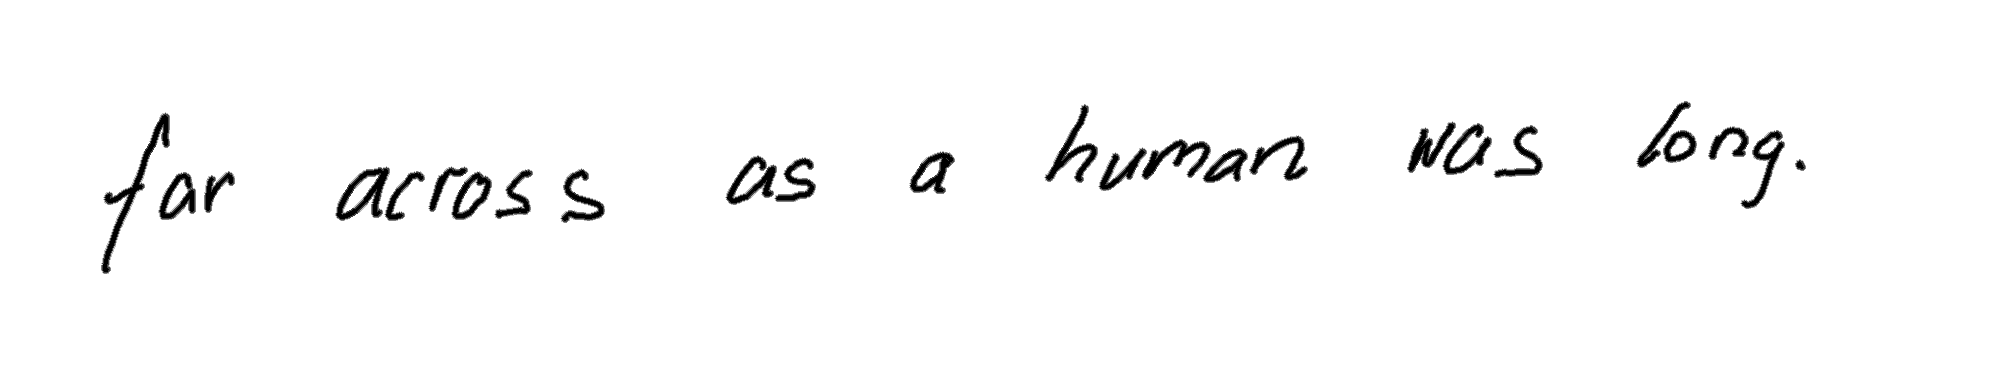 far across as a human was long.